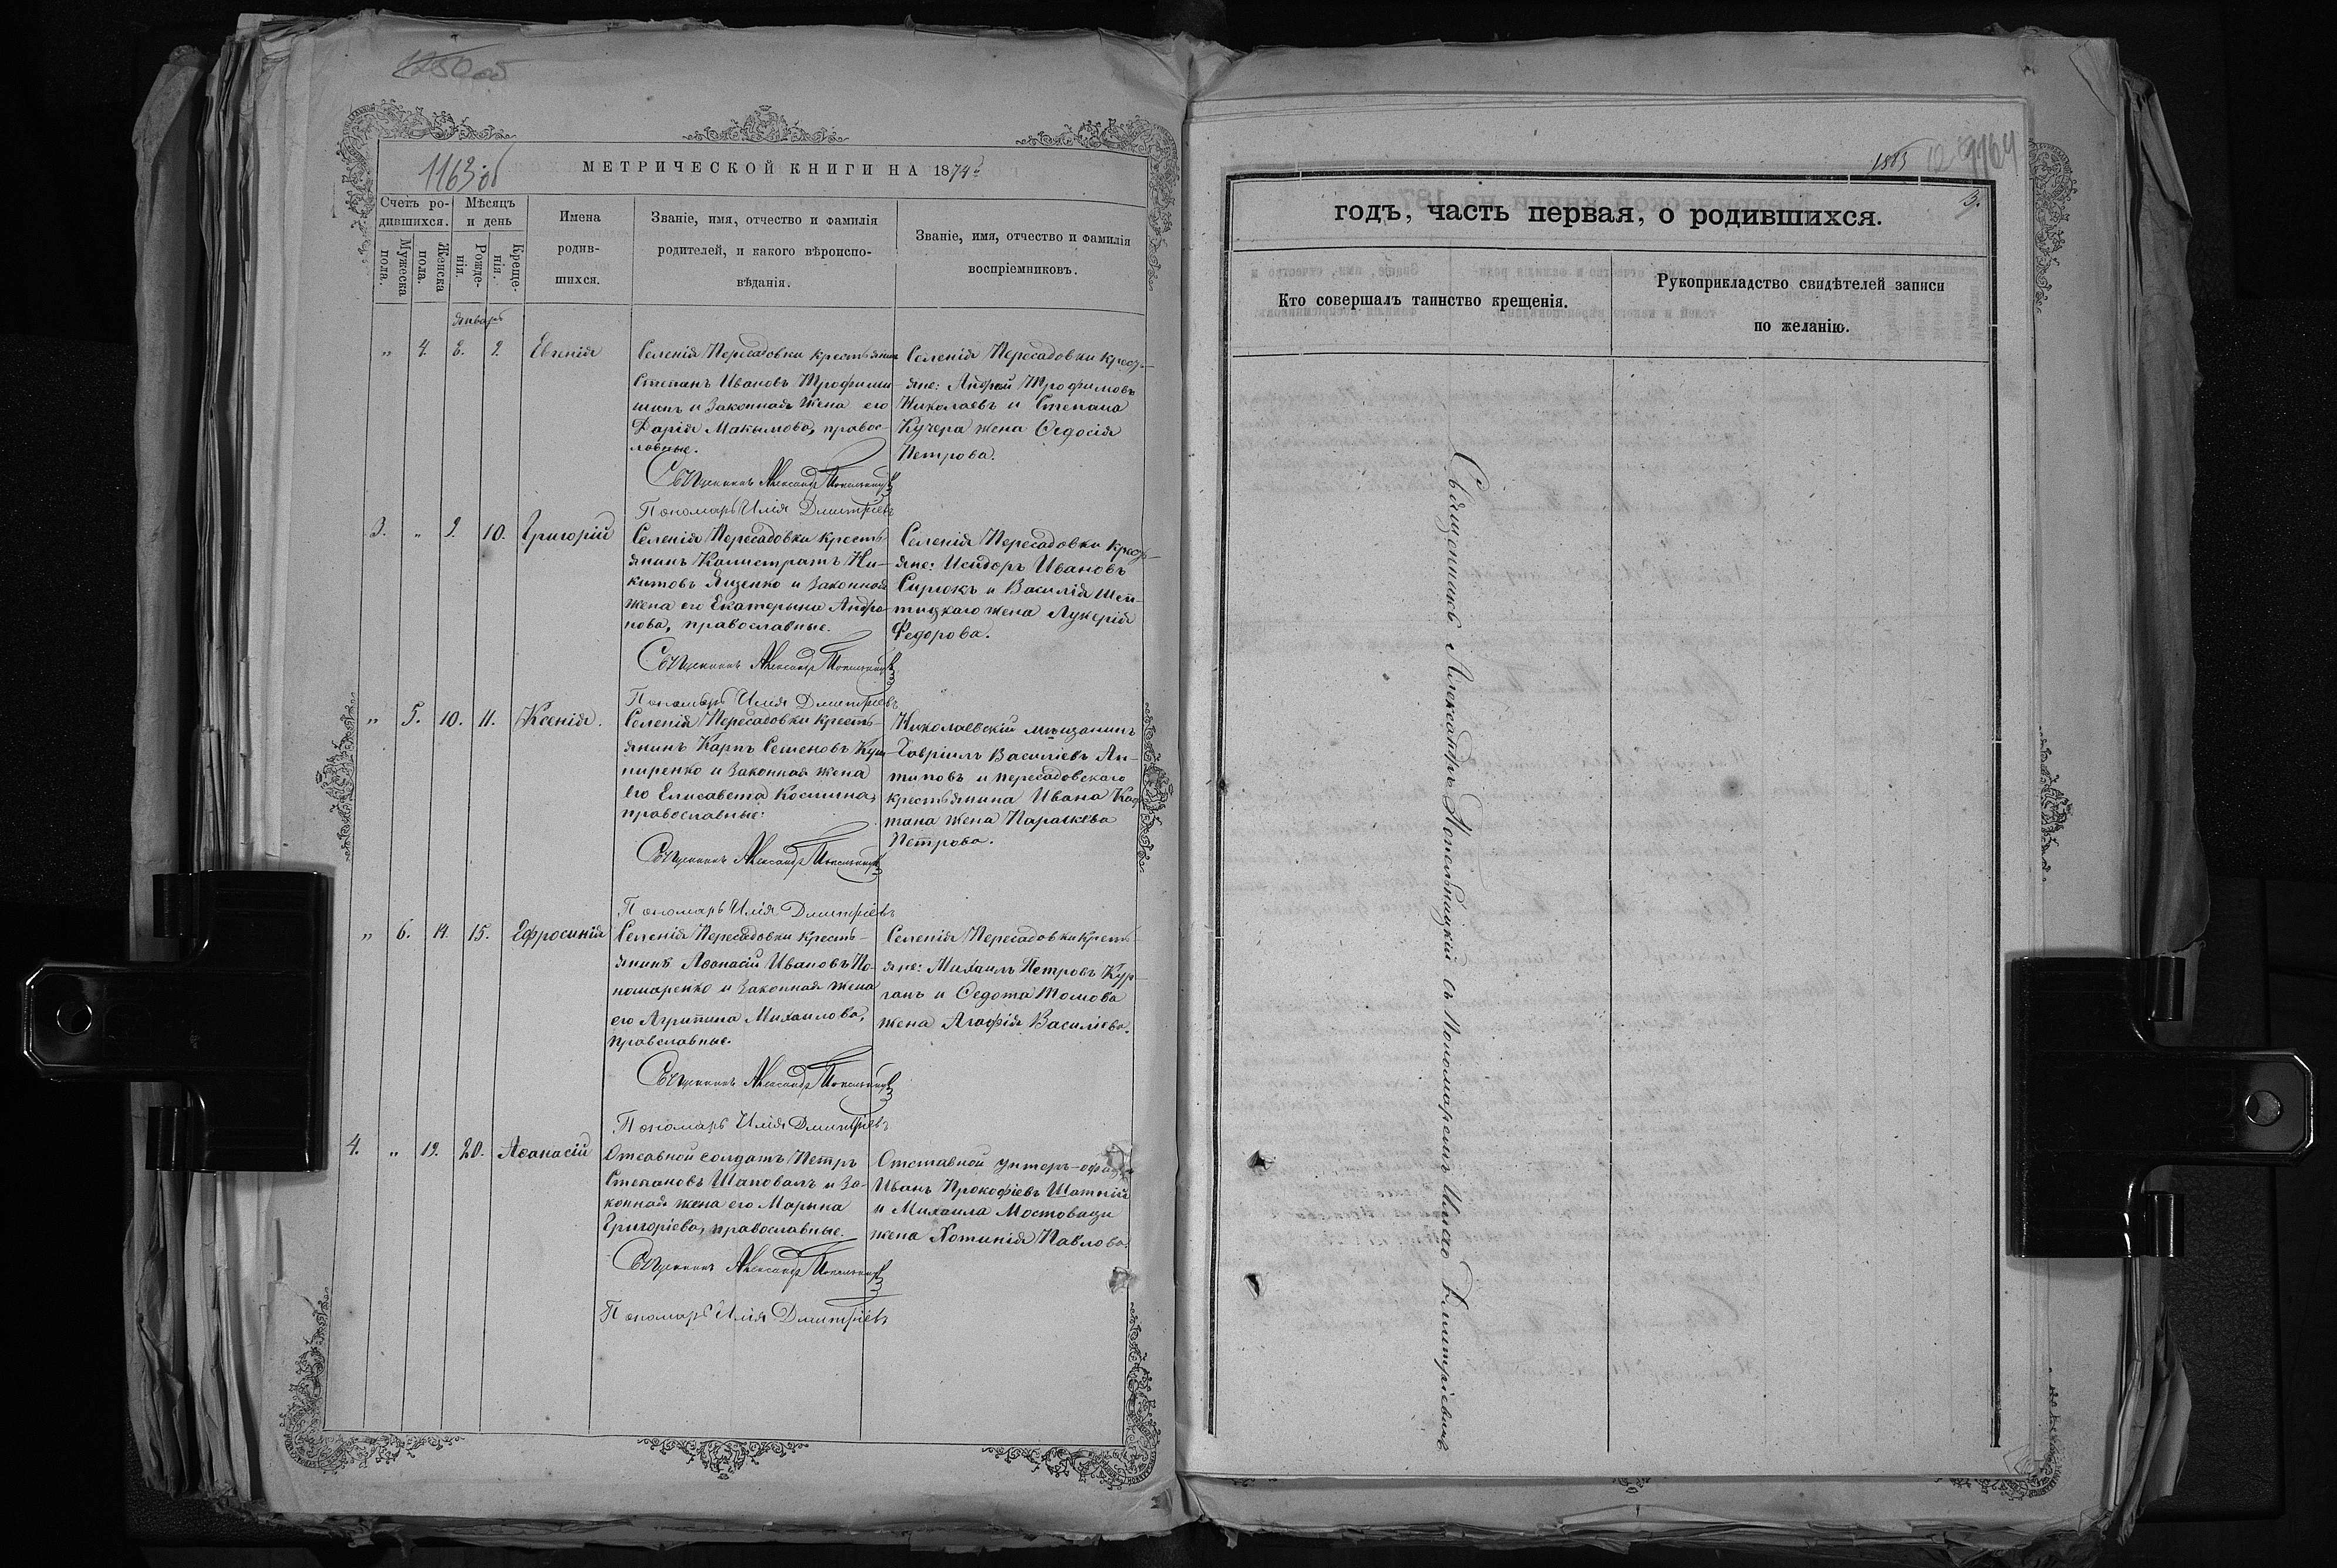 1163 об
МЕТРИЧЕСКОЙ КНИГИ НА 1874й
Счетъ ро-
дившихся.
Мѣсяцъ
и день
Мужеска
пола.
Женска
пола.
Рожде-
нія.
Креще-
нія.
Имена
родив-
шихся.
Званіе, имя, отчество и фамилія
родителей, и какого вѣроиспо-
вѣданія.
Званіе, имя, отчество и фамилія
воспріемниковъ.
январь
" 4. 8. 9. Евгенія
Селенія Пересадовки крестьянинъ
Степанъ Ивановъ
и законная жена его
Дарія Макымова, правос-
лавные.
Священникъ Александръ
Пономарь Илія Дмитріевъ
Селенія Пересадовки крест-
яне: Андрей Трофимовъ
Николаевъ и Степана
Кучера жена Ѳедосія
Петрова.
3. " 9. 10. Григорій
Селенія Пересадовки кресть-
янинъ Калистратъ Ни-
китовъ Яценко и законная
жена его Екатерына Андро-
нова, православные.
Священникъ Александръ
Пономарь Илія Дмитріевъ
Селенія Пересадовки крест-
яне: Исидоръ Ивановъ
Сирюкъ и Василія Шеп-
тицкаго жена Лукерія
Федорова.
" 5. 10. 11. Ксенія.
Селенія Пересадовки кресть-
янинъ Карпъ Семеновъ
пиренко и законная жена
его Елисавета Космина,
православные.
Священникъ Александръ
Пономарь Илія Дмитріевъ
Николаевскій мѣщанинъ
Гавріилъ Василіевъ Ан-
типовъ и пересадовскаго
крестьянина Ивана Каф-
тана жена Параскева
Петрова.
" 6. 14. 15. Ефросинія
Селенія Пересадовки кресть-
янинъ Аѳанасій Ивановъ По-
номаренко и законная жена
его Агрипина Михаилова,
православные.
Священникъ Александръ
Пономарь Илія Дмитріевъ
Селенія Пересадовки крестя-
яне: Михаилъ Петровъ Кур-
ганъ и Ѳедота Томова
жена Агафія Василіева.
4. " 19. 20. Аѳанасій
Отсавной солдатъ Петръ
Степановъ Шаповалъ и за-
конная жена его Марына
Григоріева, православные.
Священникъ Александръ
Пономарь Илія Дмитріевъ
Отставной унтеръ-офиц
Иванъ Прокофіевъ Шатній
и Михаила Мостоваци
жена Хотинія Павлова.
1164
3.
годъ, часть первая, о родившихся.
Кто совершалъ таинство крещенія.
Рукоприкладство свидѣтелей записи
по желанію.
Священникъ Александръ съ Пономаремъ Иліею Димитріевымъ